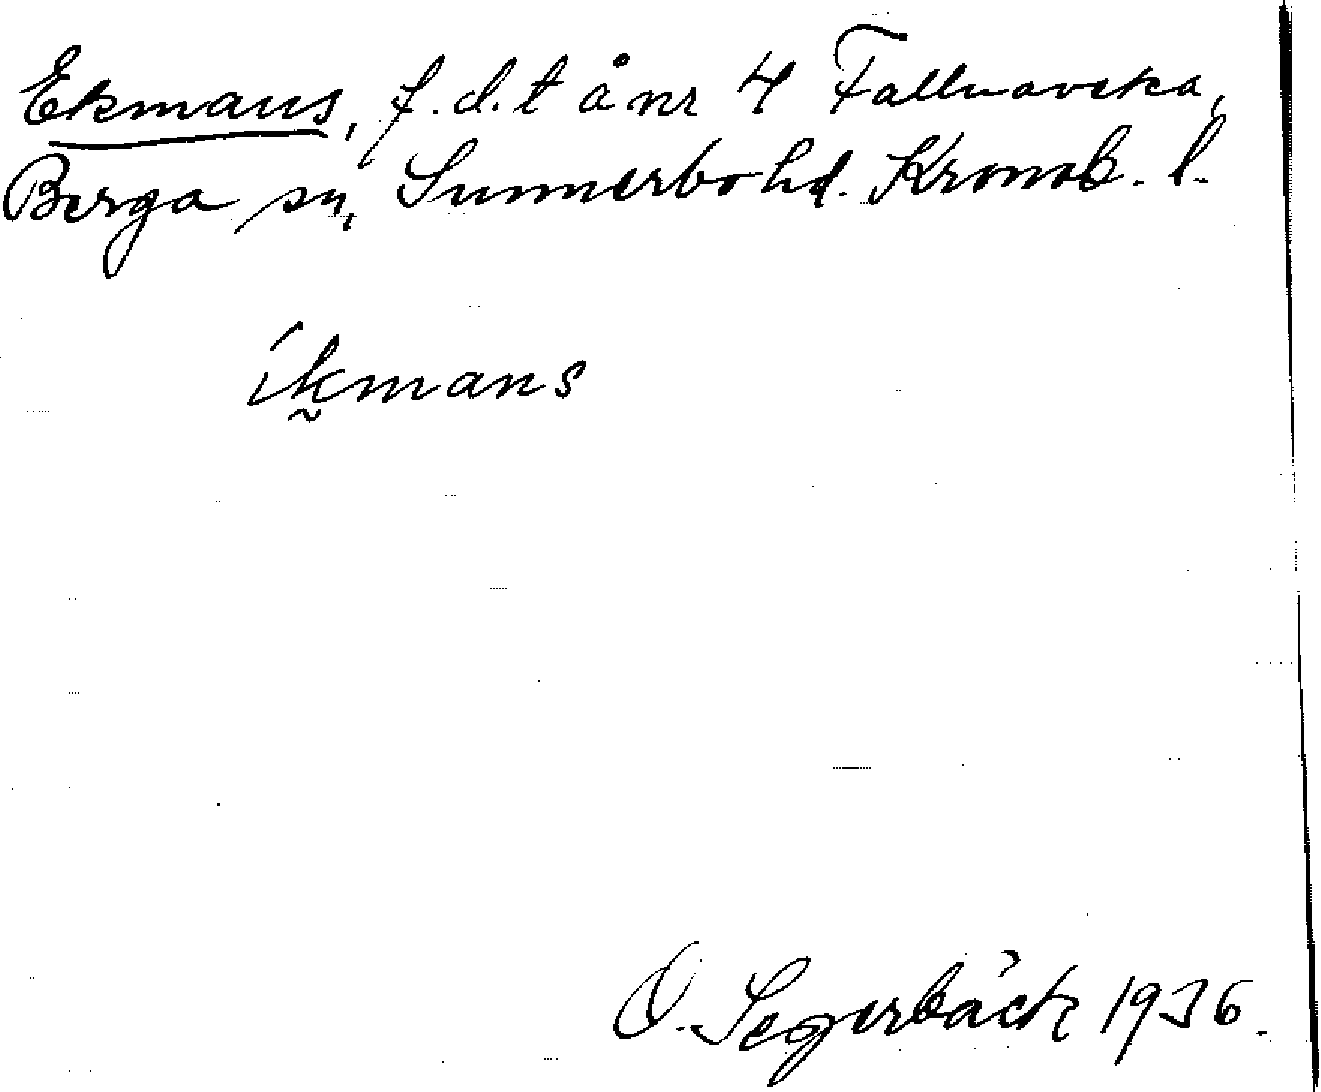 Ekmans, f.d. t å nr 4 Fallnaveka,
Berga sn, Sunnerbo hd. Kronob. l.
íkmans
O. Segerbäck 1936.